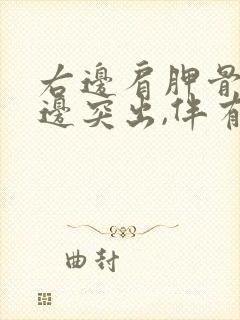 右邊肩胛骨
邊突出,伴有
曲封